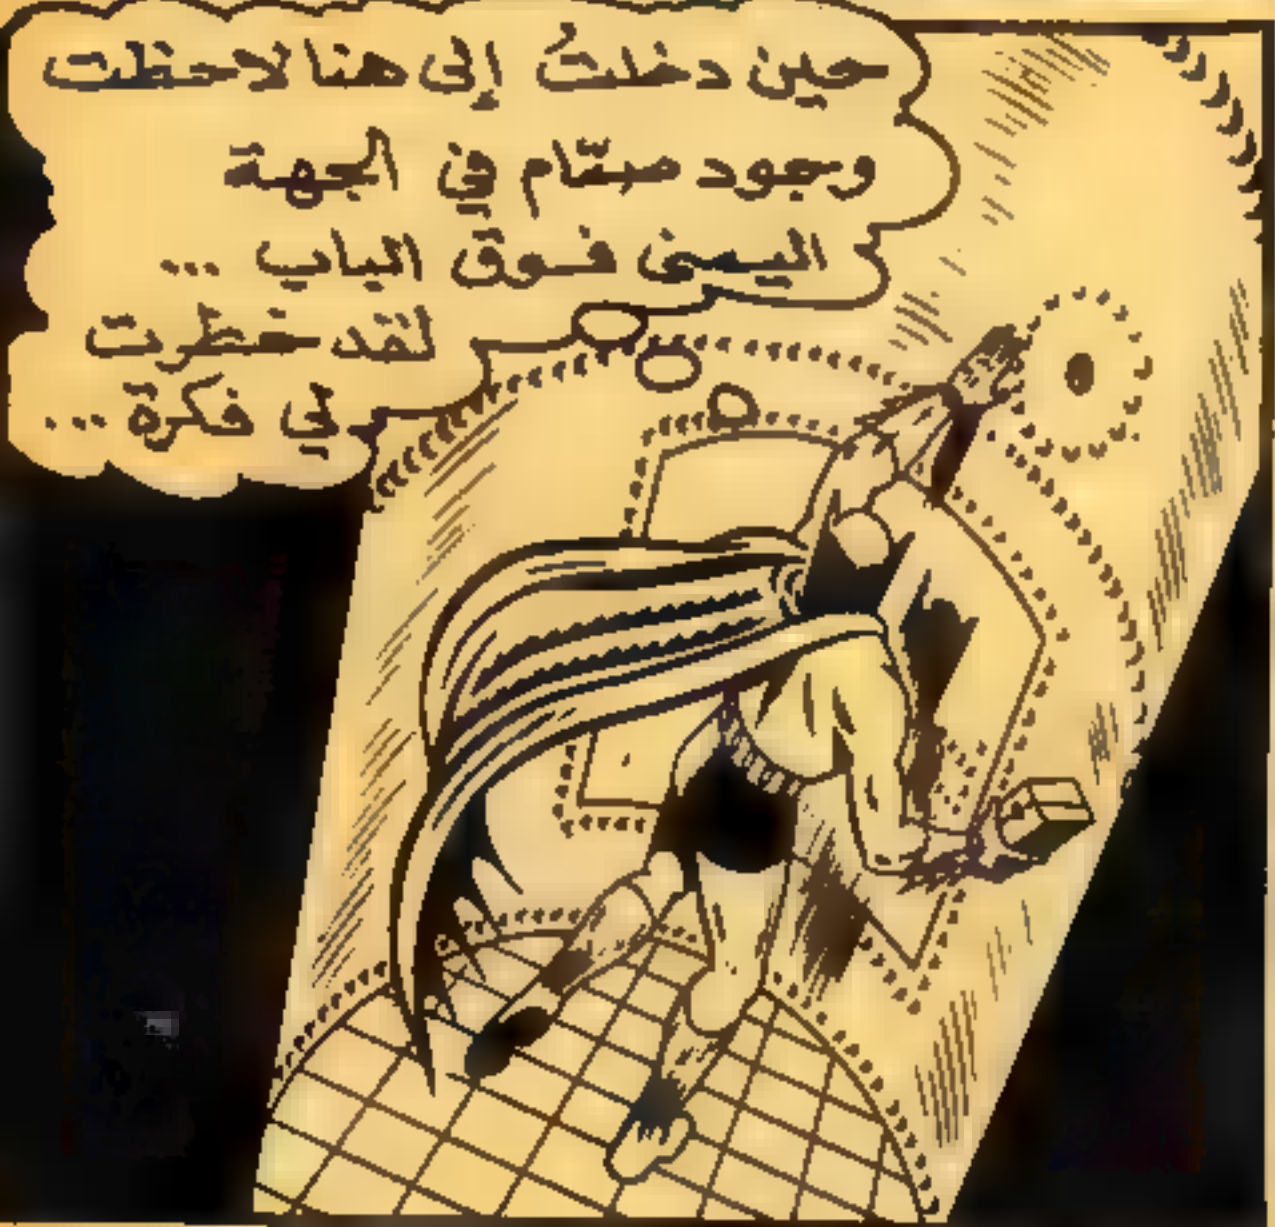 حين دخلتُ إلى هنا لاحظت
وجود صمّام في الجهة
اليمنى فوق الباب ...
لقد خطرت
لي فكرة ...